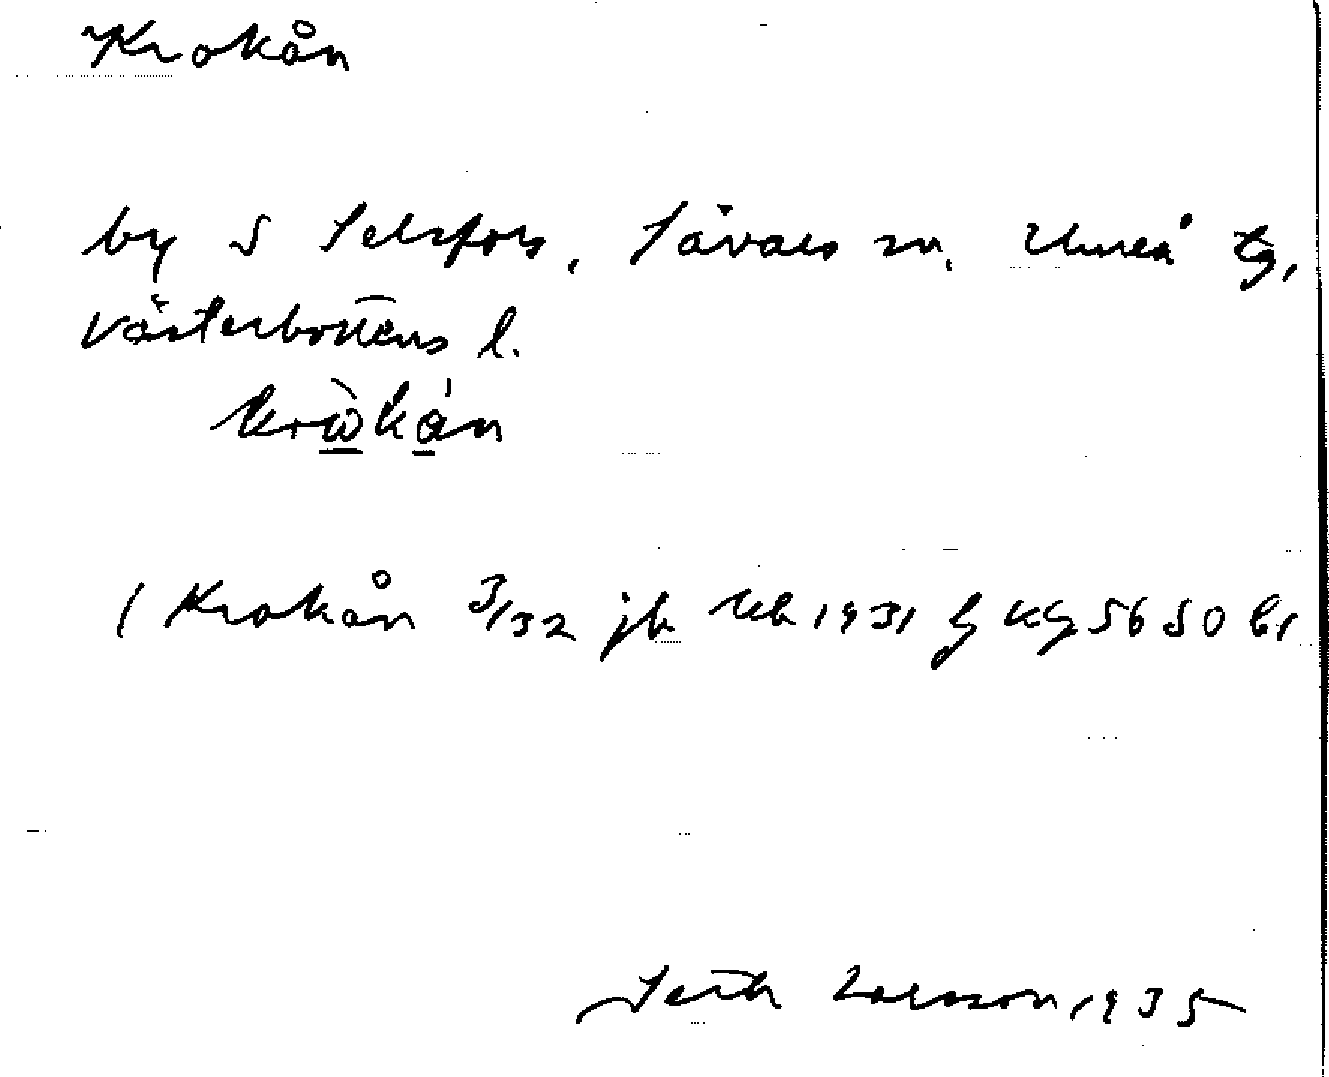 Krokån
by S Selsfors, Sävars sn, Umeå tg,
Västerbottens l.
krὼkán
(Krokån 3/32 jb Ub 1931 fg kg 5650 kr
Seth Larsson 1935